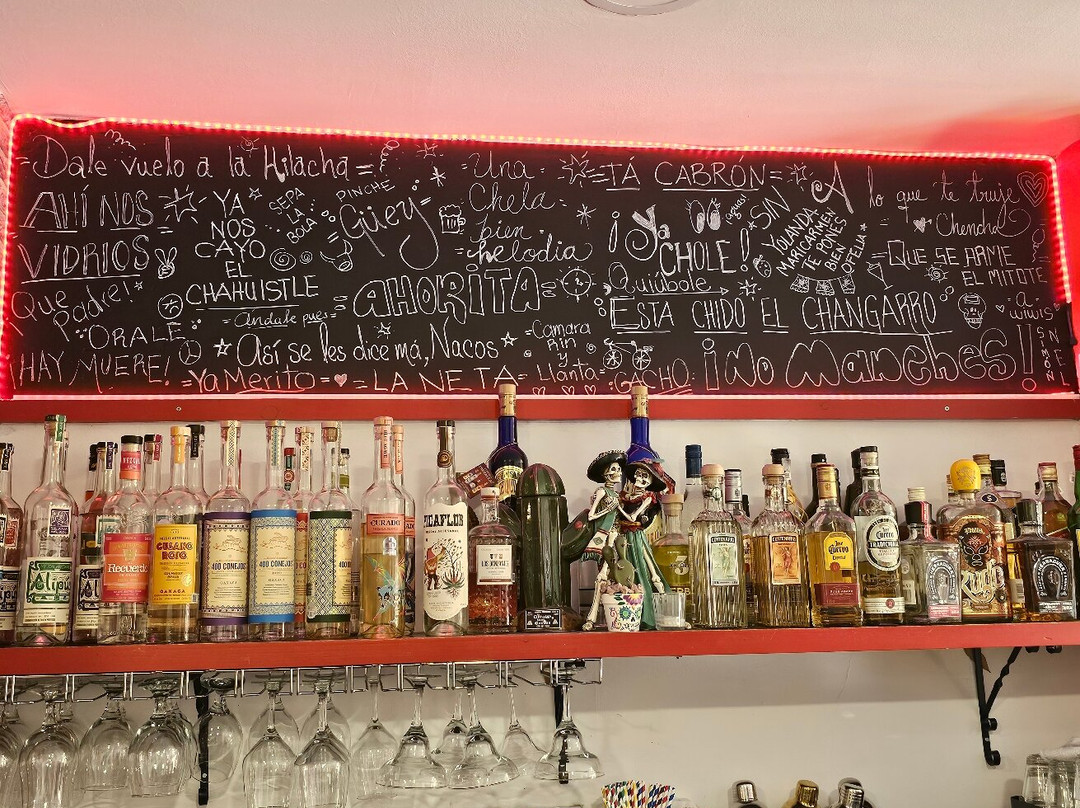 Dale vuelo a la Hilacha
AHÍ NOS
VIDRIOS
Que
Padre!
ORALE
¡HAY MUERE!
YA
NOS
CAYO
EL
CHAHUISTLE
Andale pues
SEPA
LA
BOLA
PINCHE
Güey
Así se les dice má, Nacos
Ya Merito
LA NETA
Una
Chela
bien
helodia
AHORITA
Camara
Rin
y
Llanta
GACHO
TÁ CABRÓN
¡Ya
CHOLE!
Quiúbole
SIN
YOLANDA
MARICARMEN
TE PONES
BIEN
OFELIA
A lo que te truje
Chencha
QUE SE ARME
EL MITOTE
ESTA CHIDO EL CHANGARRO
a
wiwis
¡No Manches!
SIMON
Alipús
Recuerdo
GUSANO
ROJO
OAXACA
400 CONEJOS
400 CONEJOS
400 CONEJOS
CURADO
Jose
Cuervo
Especial
Cuervo
TRADICIONAL